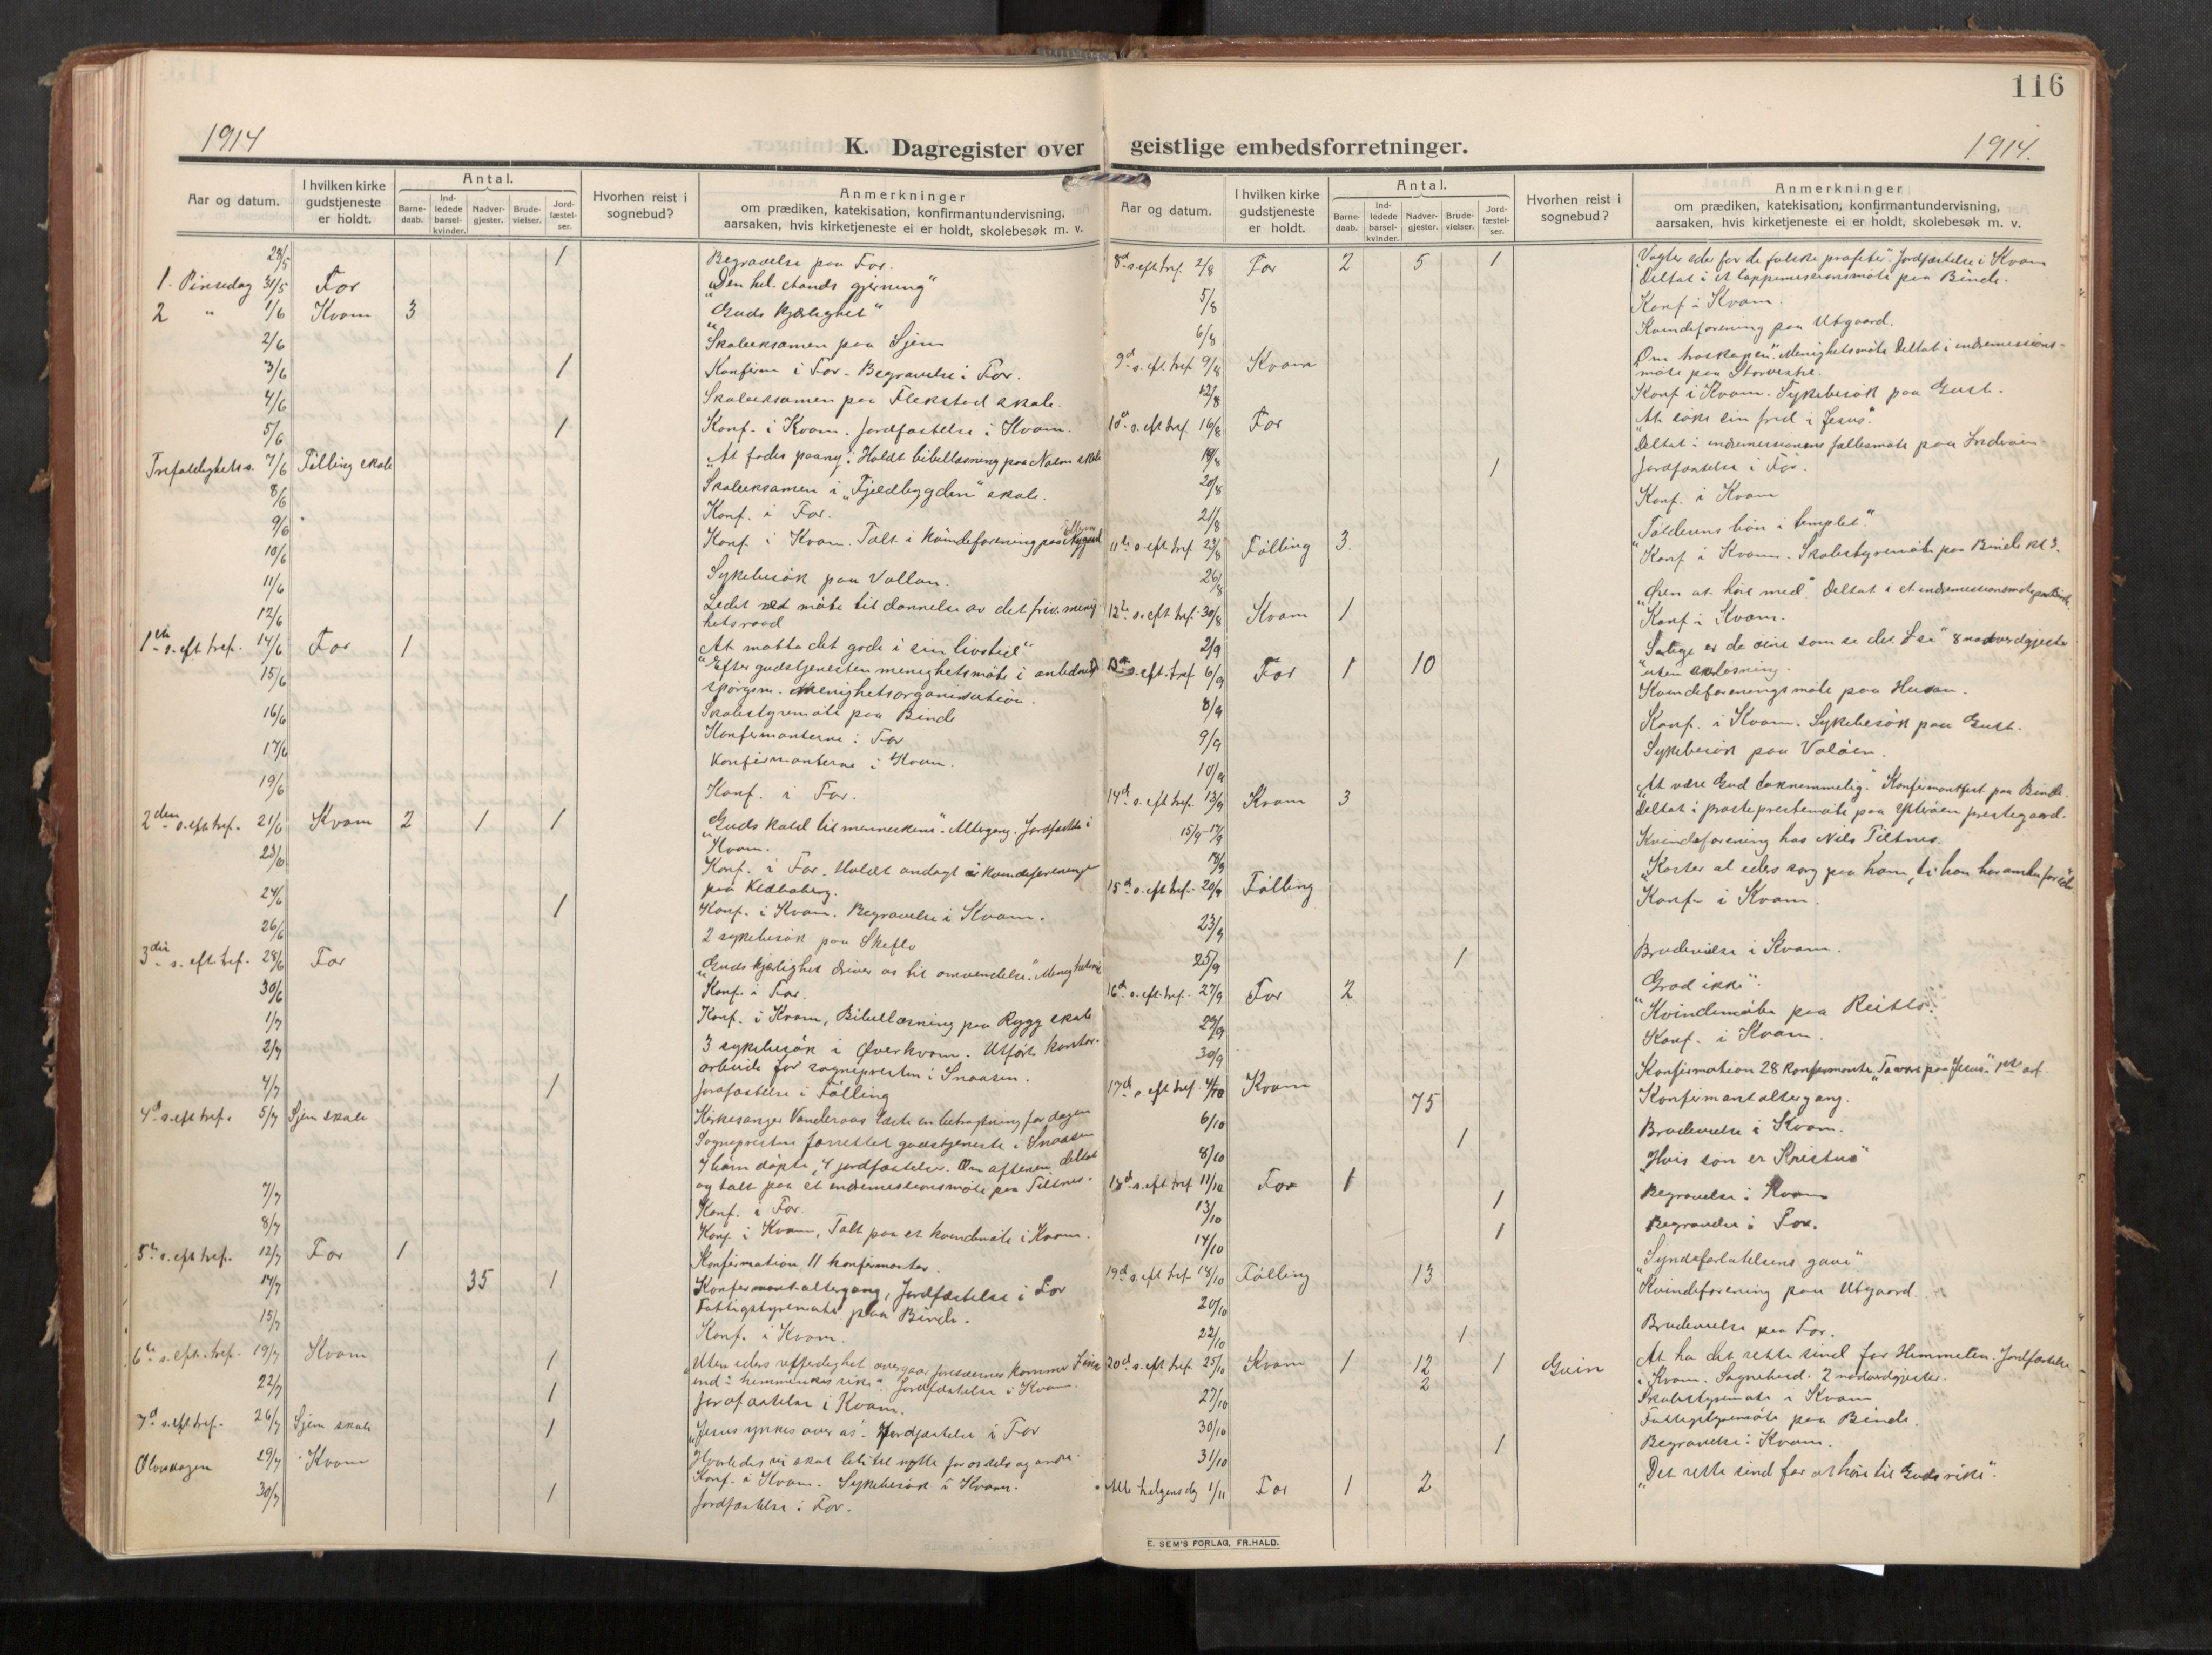 116
1914
K. Dagregister over geistlige embedsforretninger.
1914.
Aar og datum.
I hvilken kirke gudstjeneste er holdt.
Antal.
Barne-daab.
Ind-ledede barsel-kvinder.
Nadver-gjester.
Brude-vielser.
Jord-fæstel-ser.
Hvorhen reist i sognebud?
Anmerkninger
om prædiken, katekisation, konfirmantundervisning,
aarsaken, hvis kirketjeneste ei er holdt, skolebesøk m. v.
28/5 1 Begravelse paa For.
1. Pinsedag 31/5 For "Den hel. aands gjerning"
2 " 1/6 Kvam 3 "Guds kjærlighet"
2/6 Skoleeksamen paa Sjem
3/6 1 Konferm i For. Begravelse i For.
4/6 Skoleeksamen paa Flekstad skole.
5/6 1 Konf. i Kvam. Jordfæstelse i Kvam.
Trefoldighets s. 7/6 Følling skole "At fødes paany". Holdt bibellæsning paa skole
8/6 Skoleeksamen i "Fjeldbygden" skole.
9/6 Konf. i For.
10/6 Konf. i Kvam. Talt i kvindeforening paa
11/6 Sykebesøk paa Vollan.
12/6 Ledet ved møte til dannelse av det friv. menig-
hetsraad
1ste s. eft. tref. 14/6 For 1 "At motta det gode i sin livstid"
15/6 Efter gudstjenesten menighetsmøte i anledn.
spørgsm. menighetsorganisation.
16/6 Skolestyremøte paa Binde
Konfirmanterne i For
17/6 Konfirmanterne i Kvam.
19/6 Konf. i For.
2den s. eft. tref. 21/6 Kvam 2 1 1 "Guds kald til menneskene". Altergang. Jordfæstelse i
Kvam.
23/6 Konf. i For. Holdt andagt i kvindeforeningen
paa Kleboberg.
24/6 1 Konf. i Kvam. Begravelse i Kvam.
26/6 2 sykebesøk paa Skeflo
3die s. eft. tref. 28/6 For "Guds kjærlighet driver os til omvendelse".
30/6 Konf. i For.
1/7 Konf. i Kvam, Bibellæsning paa Rygg skole
2/7 3 sykebesøk i Øverkvam. Utført kontor-
arbeide for sognepresten i Snaasen.
4/7 1 Jordfæstelse i Følling
4d s. eft. tref. 5/7 Sjem skole Kirkesanger Vanderaas læste en betragtning for dagen
Sognepresten forrettet gudstjeneste i Snaasen
4 børn døpte, 4 jordfæstelser. Om aftenen deltat
og talt paa et indremissionsmøte paa Tiltnes.
7/7 Konf. i For.
8/7 Konf i Kvam, Talt paa et kvindemøte i Kvam.
5te s. eft. tref. 12/7 For 1 Konfirmation 11 konfirmanter.
14/7 35 1 Konfirmantaltergang, Jordfæstelse i For
15/7 Fattigstyremøte paa Binde.
Konf. i Kvam.
6te s. eft. tref. 19/7 Kvam 1 "Uten eders retfærdighet overgaar farisæernes kommer I ikke
ind i himmeriges rike". Jordfæstelse i Kvam.
22/7 1 Jordfæstelse i Kvam.
7d s. eft. tref. 26/7 Sjem skole 1 "Jesus ynkes over os". Jordfæstelse i For
Olavsdagen 29/7 Kvam Hvorledes vi skal bli til nytte for os selv og andre.
Konf. i Kvam. Sykebesøk i Kvam.
30/7 1 Jordfæstelse i For.
Aar og datum.
I hvilken kirke gudstjeneste er holdt.
Antal.
Barne-daab.
Ind-ledede barsel-kvinder.
Nadver-gjester.
Brude-vielser.
Jord-fæstel-ser.
Hvorhen reist i sognebud?
Anmerkninger
om prædiken, katekisation, konfirmantundervisning,
aarsaken, hvis kirketjeneste ei er holdt, skolebesøk m. v.
8d s. eft. tref. 2/8 For 2 5 1 "Vogter eder for de falske profeter". Jordfæstelse i Kvam
Deltat i et lappemissionsmøte paa Binde.
5/8 Konf i Kvam.
6/8 Kvindeforening paa Utgaard.
9d s. eft. tref 9/8 Kvam "Om troskapen". Menighetsmøte. Deltat i indremissions-
møte paa Storvestre.
12/8 Konf i Kvam. Sykebesøk paa Gust.
10d s. eft. tref. 16/8 For "At søke sin fred i Jesus".
Deltat i indremissionens fællesmøte paa Inderøen.
19/8 1 Jordfæstelse i For.
20/8 Konf. i Kvam
21/8
11te s. eft. tref. 23/8 Følling 3. "Tolderens bøn i templet".
26/8 Konf i Kvam. Skolestyremøte paa Binde kl 3.
12te s. eft. tref. 30/8 Kvam 1 "Øren at høre med". Deltat i et indremissionsmøte paa Binde.
2/9 Konf. i Kvam.
13de s. eft. tref 6/9 For 1 10 "Salige er de øine som se det I se" 8 nadverdgjester
uten avløsning.
8/9 Kvindeforeningsmøte paa
9/9 Konf. i Kvam. Sykebesøk paa Gust.
10/9 Sykebesøk paa Valøen.
14de s. eft. tref. 13/9 Kvam 3 "At være Gud taknemmelig". Konfirmantfest paa Binde.
15/9-17/9 Deltat i prostiprestemøte paa Ytterøen prestegaard.
18/9 Kvindeforening hos Nils Tiltnes.
15d s. eft. tref. 20/9 Følling "Kaster al eders sorg paa ham, ti han har omhu for eder"
23/9 Konf. i Kvam.
25/9 1 Brudevielse i Kvam.
16d s. eft. tref. 27/9 For 2 "Graat ikke".
29/9 Kvindemøte paa
30/9 Konf. i Kvam.
17d s. eft. tref. 4/10 Kvam Konfirmation 28 konfirmanter
6/10 75 Konfirmantaltergang.
8/10 1 Brudevielse i Kvam.
18d s. eft. tref 11/10 For 1 "Hvis søn er Kristus"
13/10 1 Begravelse i Kvam
14/10 1 Begravelse i For.
19d s. eft. tref 18/10 Følling 13 "Syndsforlatelsens gave"
20/10 Kvindeforening paa Utgaard.
22/10 1 Brudevielse paa For.
20d s. eft. tref 25/10 Kvam 1 12 1 Gvin "At ha det rette sind for Himmelen. Jordfæstelse
2 i Kvam. Sognebud. 2 nadverdgjester.
27/10 Skolestyremøte i Kvam
30/10 Fattigstyremøte paa Binde.
31/10 1 Begravelse i Kvam.
Alle helgens dg 1/11 For 1 2 "Det rette sind for at høre til Guds rike".
E. SEM'S FORLAG, FR.HALD.